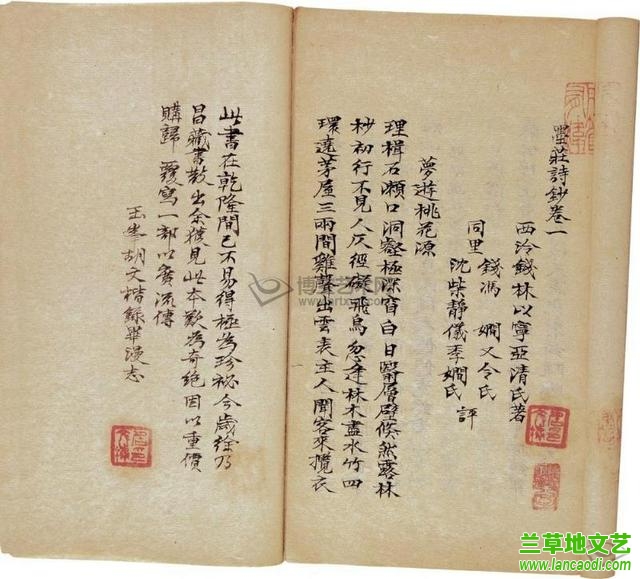 墨莊詩鈔卷一
西泠錢林以寧亞清氏著
同里 錢馮嫻又令氏
沈柴靜儀季嫻氏 評
夢遊桃花源
理楫石瀨口洞壑極深窅白日翳層壁倏然露林
杪初行不見人仄徑礙飛鳥忽逢林木盡水竹四
環遶茅屋三兩間雞聲出雲表主人聞客來攬衣
此書在乾隆間已不易得極為珍祕今歲徐乃
昌藏書散出余獲見此本歎為奇絕因以重價
購歸 覆寫一部以廣流傳
玉峯胡文楷錄畢漫志
兰草地文艺
www.lancaodi.com